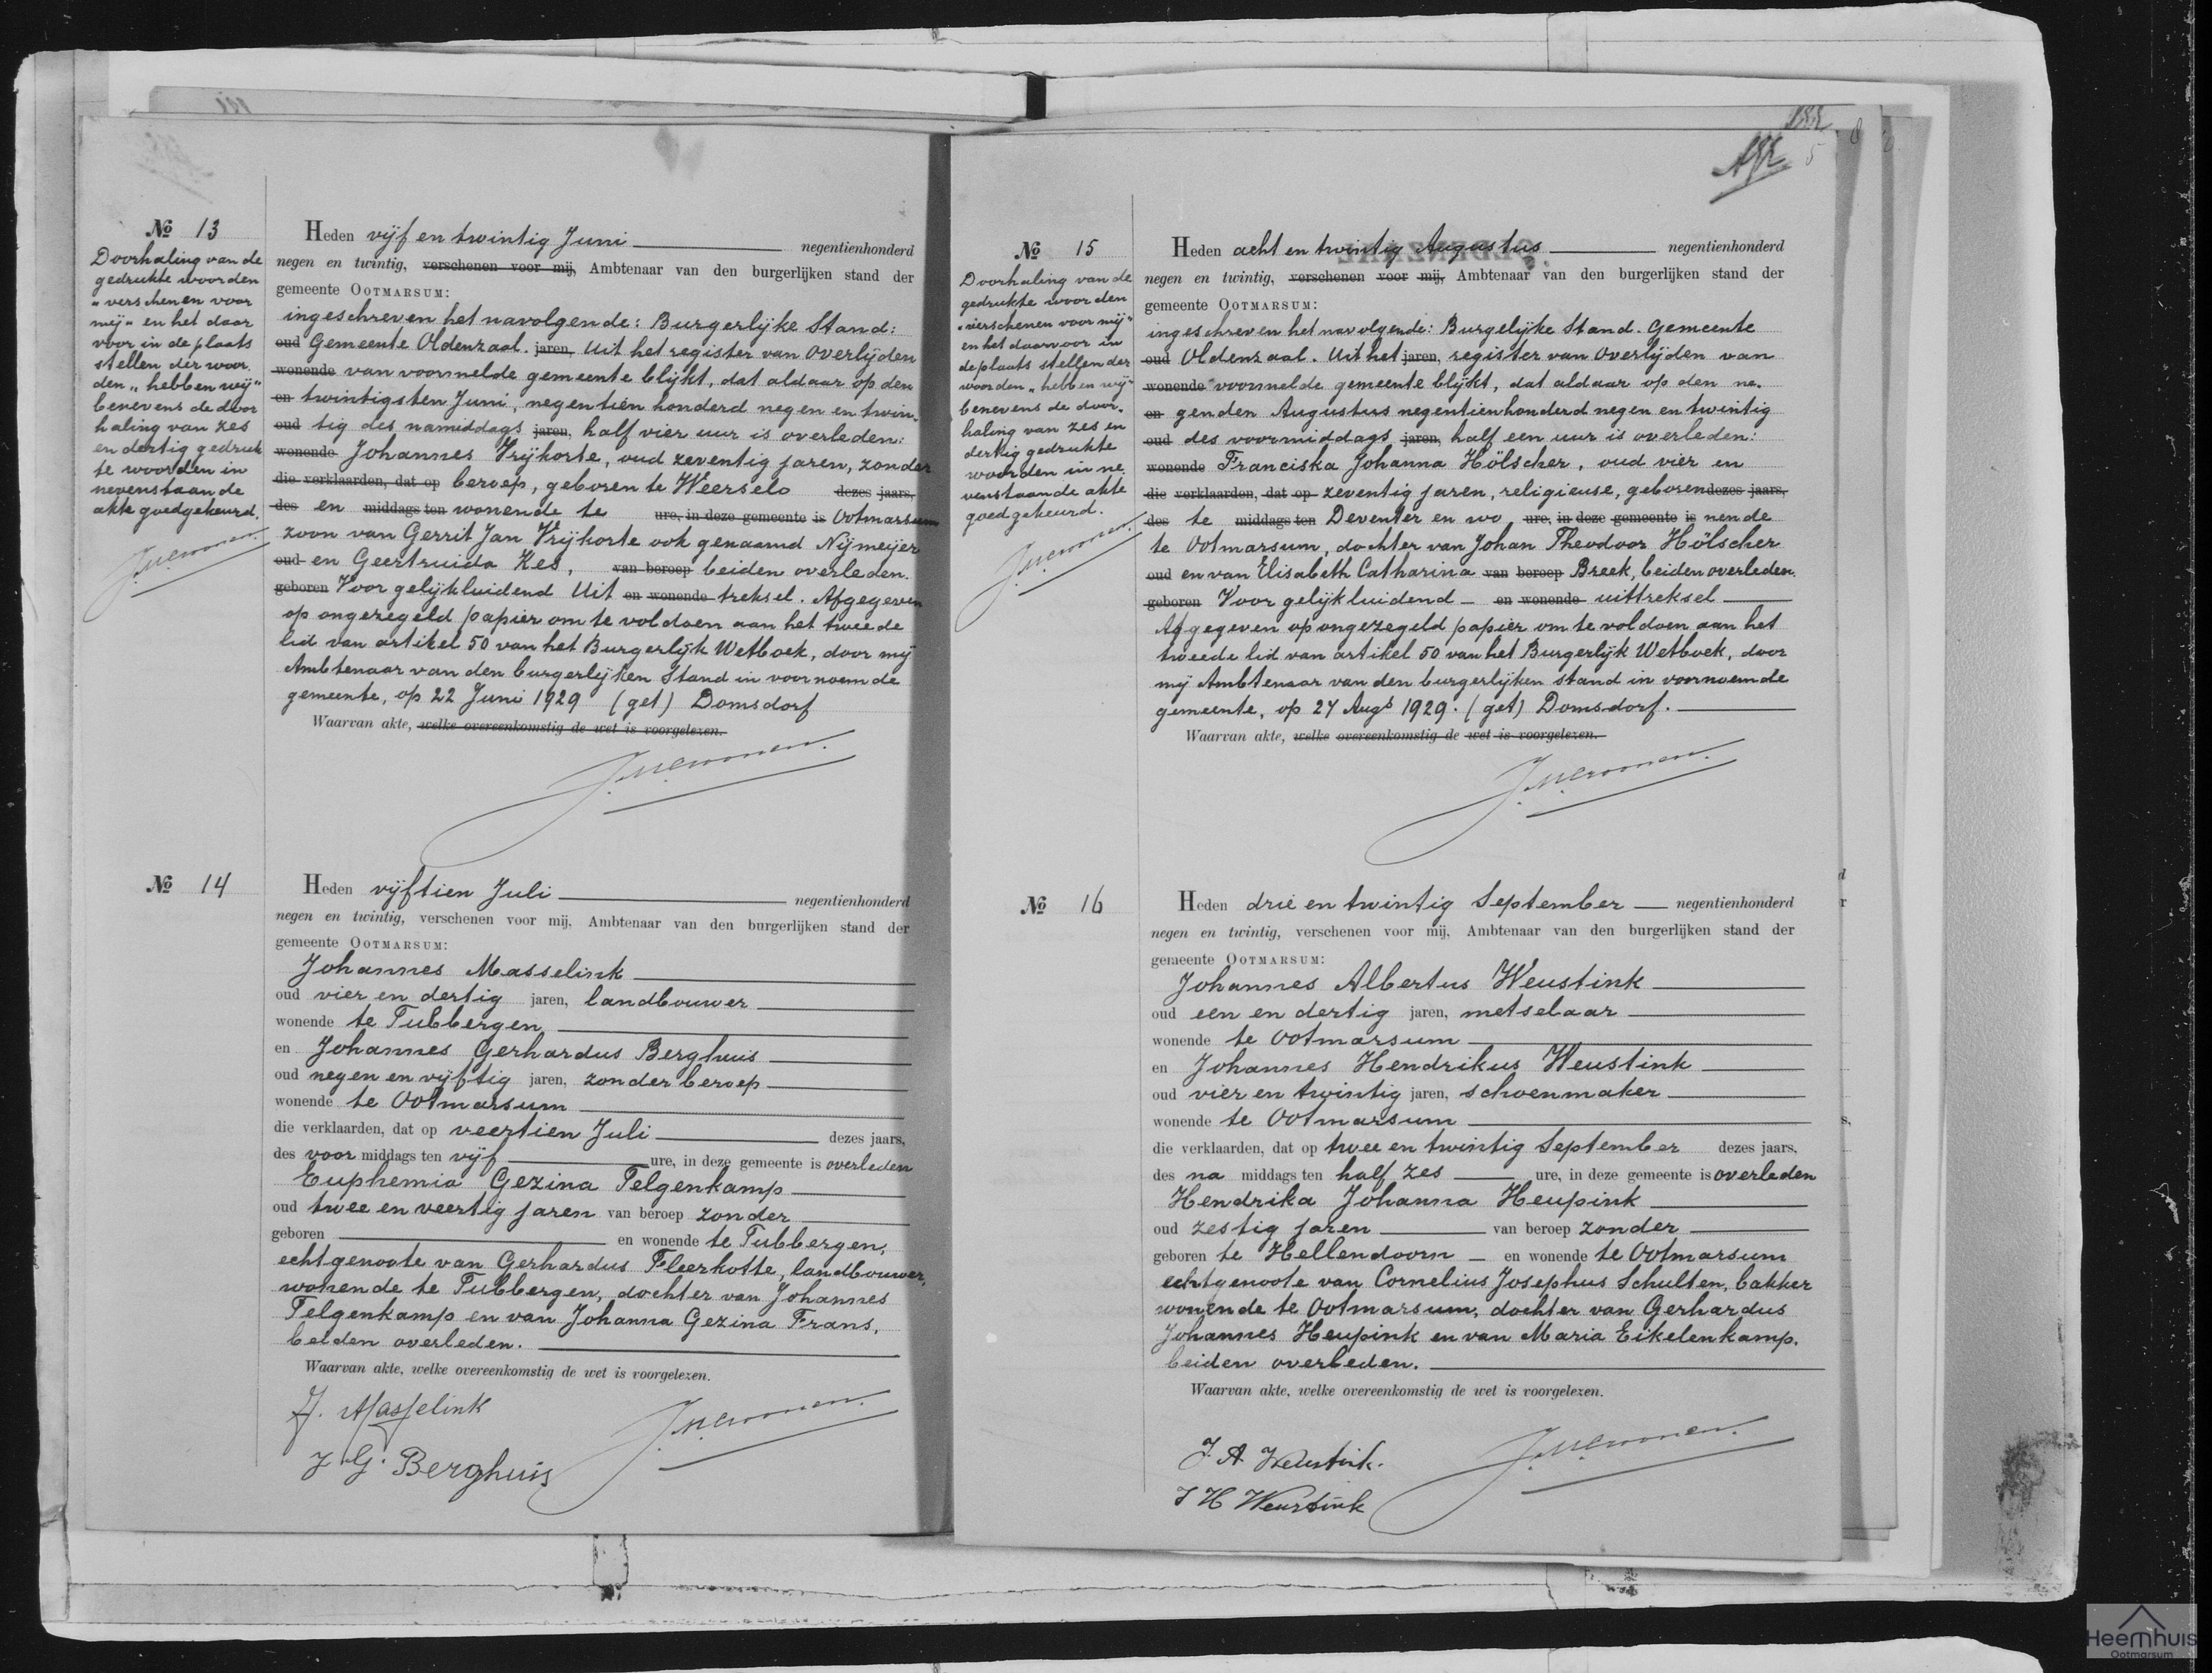 № 13
Doorhaling van de
gedrukte woorden
„verschenen voor
mij" en het daar
voor in de plaats
stellen der woor
den „hebben wij"
benevens de door
haling van zes
en dertig gedruk
te woorden in
nevenstaande
akte goedgekeurd.
Heden vijf en twintig Juni negentienhonderd
negen en twintig, verschenen voor mij, Ambtenaar van den burgerlijken stand der
gemeente OOTMARSUM:
ingeschreven het navolgende: Burgerlijke Stand:
oud Gemeente Oldenzaal. jaren, Uit het register van Overlijden
wonende van voormelde gemeente blijkt, dat aldaar op den
en twintigsten Juni, negentien honderd negen en twin-
oud tig des namiddags jaren, half vier uur is overleden:
wonende Johannes Vrijkorte, oud zeventig jaren, zonder
die verklaarden, dat op beroep, geboren te Weerselo dezes jaars,
des en middags ten wonende te ure, in deze gemeente is Ootmarsum
zoon van Gerrit Jan Vrijkorte ook genaamd Nijmeijer
oud en Geertruida Kes, van beroep beiden overleden.
geboren Voor gelijkluidend Uit en wonende treksel. Afgegeven
op ongezegeld papier om te voldoen aan het tweede
lid van artikel 50 van het Burgerlijk Wetboek, door mij
Ambtenaar van den burgerlijken Stand in voornoemde
gemeente, op 22 Juni 1929 (get) Domsdorf
Waarvan akte, welke overeenkomstig de wet is voorgelezen.
№ 14
Heden vijftien Juli negentienhonderd
negen en twintig, verschenen voor mij, Ambtenaar van den burgerlijken stand der
gemeente OOTMARSUM:
Johannes Masselink
oud vier en dertig jaren, landbouwer
wonende te Tubbergen
en Johannes Gerhardus Berghuis
oud negen en vijftig jaren, zonder beroep
wonende te Ootmarsum
die verklaarden, dat op veertien Juli dezes jaars,
des voor middags ten vijf ure, in deze gemeente is overleden
Euphemia Gezina Telgenkamp
oud twee en veertig jaren van beroep zonder
geboren en wonende te Tubbergen,
echtgenoote van Gerhardus Fleerkotte, landbouwer,
wonende te Tubbergen, dochter van Johannes
Telgenkamp en van Johanna Gezina Frans,
beiden overleden.
Waarvan akte, welke overeenkomstig de wet is voorgelezen.
J. Masselink
J G. Berghuis
№ 15
Doorhaling van de
gedrukte woorden
„verschenen voor mij"
en het daarvoor in
de plaats stellen der
woorden „hebben wij"
benevens de door-
haling van zes en
dertig gedrukte
woorden in ne
venstaande akte
goedgekeurd.
Heden acht en twintig Augustus negentienhonderd
negen en twintig, verschenen voor mij, Ambtenaar van den burgerlijken stand der
gemeente OOTMARSUM:
ingeschreven het navolgende: Burgelijke Stand. Gemeente
oud Oldenzaal. Uit het jaren, register van Overlijden van
wonende voormelde gemeente blijkt, dat aldaar op den ne-
en genden Augustus negentienhonderd negen en twintig
oud des voormiddags jaren, half een uur is overleden:
wonende Franciska Johanna Hölscher, oud vier en
die verklaarden, dat op zeventig jaren, religieuse, geboren dezes jaars,
des te middags ten Deventer en wo ure, in deze gemeente is nende
te Ootmarsum, dochter van Johan Theodoor Hölscher
oud en van Elisabeth Catharina van beroep Breek, beiden overleden.
geboren Voor gelijkluidend en wonende uittreksel
Afgegeven op ongezegeld papier om te voldoen aan het
tweede lid van artikel 50 van het Burgerlijk Wetboek, door
mij Ambtenaar van den burgerlijken stand in voornoemde
gemeente, op 27 Augs 1929. (get) Domsdorf.
Waarvan akte, welke overeenkomstig de wet is voorgelezen.
№ 16
Heden drie en twintig September negentienhonderd
negen en twintig, verschenen voor mij, Ambtenaar van den burgerlijken stand der
gemeente OOTMARSUM:
Johannes Albertus Weustink
oud een en dertig jaren, metselaar
wonende te Ootmarsum
en Johannes Hendrikus Weustink
oud vier en twintig jaren, schoenmaker
wonende te Ootmarsum
die verklaarden, dat op twee en twintig September dezes jaars,
des na middags ten half zes ure, in deze gemeente is overleden
Hendrika Johanna Heupink
oud zestig jaren van beroep zonder
geboren te Hellendoorn en wonende te Ootmarsum
echtgenoote van Cornelius Josephus Schulten, bakker
wonende te Ootmarsum, dochter van Gerhardus
Johannes Heupink en van Maria Eikelenkamp.
beiden overleden.
Waarvan akte, welke overeenkomstig de wet is voorgelezen.
J. A. Weustink.
J H Weustink
Heemhuis
Ootmarsum